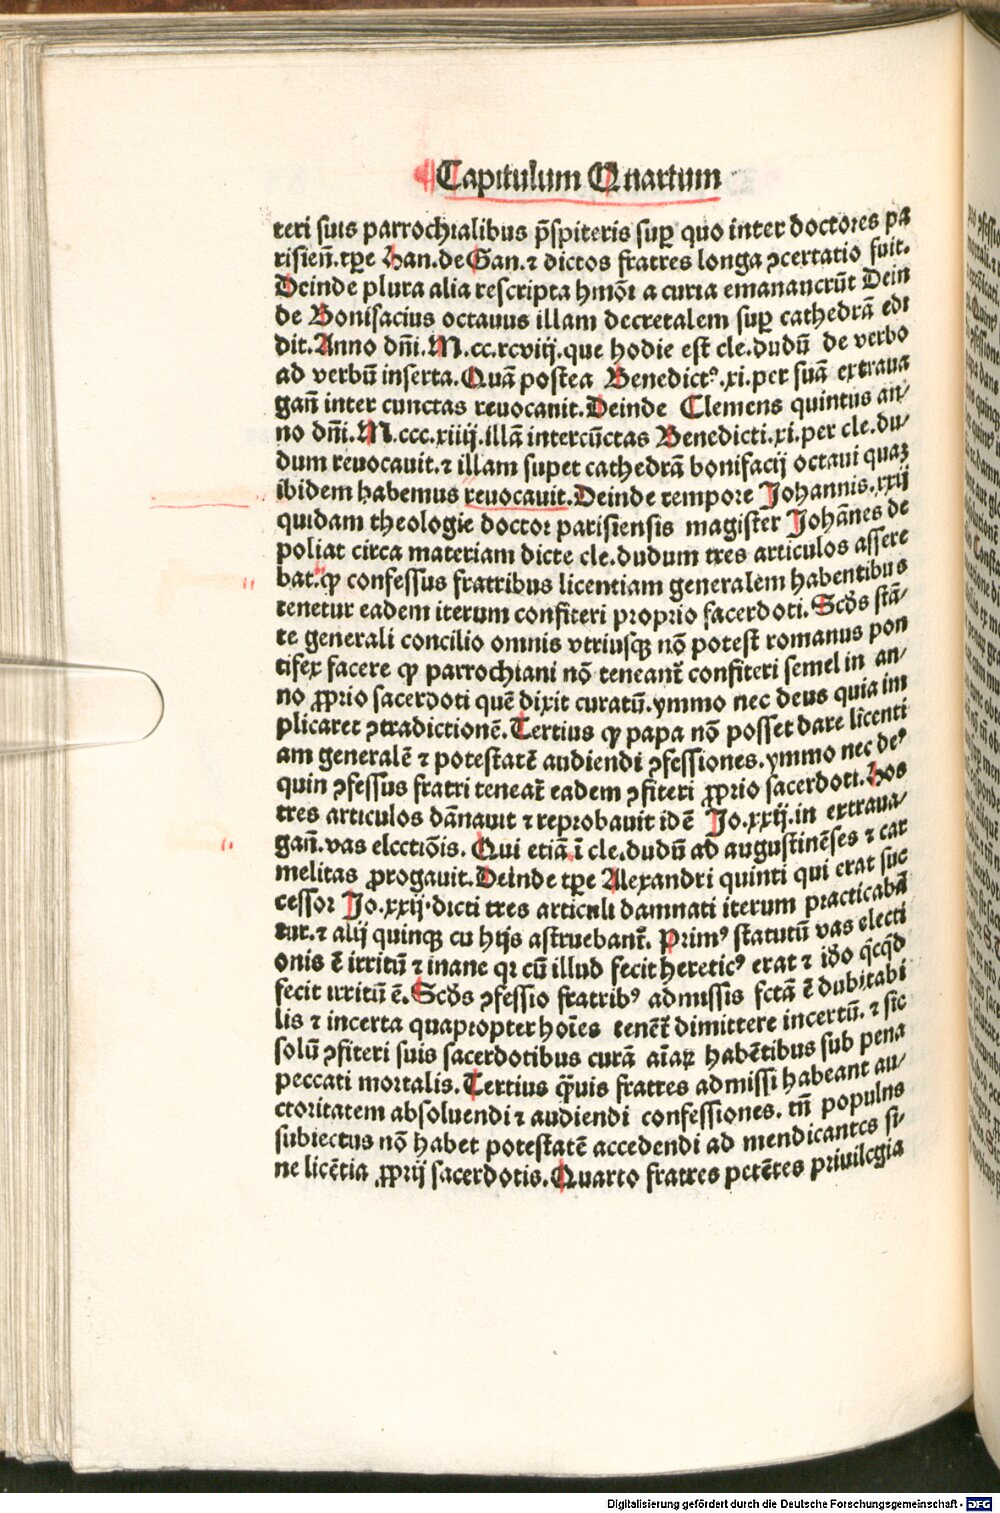 Capitulum Quartum
teri suis parrochialibus p̄spiteris suꝑ quo inter doctores pa
risieñ.tꝑe Han.de Gan.⁊ dictos fratres longa ꝯcertatio fuit.
Deinde plura alia rescripta hmõi a curia emanancrūt Dein
de Bonifacius octauus illam decretalem suꝑ cathedrā edi
dit.Anno dñi.M.cc.xcviij.que hodie est cle.dudū de verbo
ad verbū inserta.Quā postea Benedictꝰ.xi.per suā extraua
gañ inter cunctas reuocauit.Deinde Clemens quintus an/
no dñi.M.ccc.xiiij.illā intercūctas Benedicti.xi.per cle.du/
dum reuocauit.⁊ illam supet cathedrā bonifacij octaui quaꝫ
ibidem habemus reuocauit.Deinde tempore Johannis.xxij
quidam theologie doctor parisiensis magister Johānes de
poliat circa materiam dicte cle.dudum tres articulos assere
bat.ꝙ confessus fratribus licentiam generalem habentibus
tenetur eadem iterum confiteri proprio sacerdoti.Scd̄s stā/
te generali concilio omnis vtriusqꝫ nō potest romanus pon
tifex facere ꝙ parrochiani nō teneant̃ confiteri semel in an/
no ꝓprio sacerdoti quē dixit curatū.ymmo nec deus quia im
plicaret ꝯtradictionē.Tertius ꝙ papa nō posset dare licenti
am generalē ⁊ potestatē audiendi ꝯfessiones.ymmo nec deꝰ
quin ꝯfessus fratri teneat̃ eadem ꝯfiteri ꝓprio sacerdoti.Hos
tres articulos dānauit ⁊ reprobauit idē Jo.xxij.in extraua/
gañ.vas elcctiōis. Qui etiā ī cle.dudū ad augustinēses ⁊ car
melitas ꝓrogauit.Deinde tꝑe Alexandri quinti qui erat suc
cessor Jo.xxij.dicti tres articuli damnati iterum practicabā
tur.⁊ alij quinqꝫ cu htijs astruebant̃. Primꝰ statutū vas electi
onis ē irritū ⁊ inane qꝛ cū illud fecit hereticꝰ erat ⁊ iđo q̄cq̄d
fecit irritū ē.Scd̄s ꝯfessio fratribꝰ admissis fctā ē dubitabi
lis ⁊ incerta quapropter hoīes tenēt̃ dimittere incertū. ⁊ sic
solū ꝯfiteri suis sacerdotibus curā aīaꝝ habētibus sub pena
peccati mortalis.Tertius q̄uis fratres admissi habeant au/
ctoritatem absoluendi ⁊ audiendi confessiones. tñ populns
subiectus nō habet potestatē accedendi ad mendicantcs si/
ne licētia ꝓprij sacerdotis.Quarto fratres pctētes priuilcgia
Digitalisierung gefördert durch die Deutsche Forschungsgemeinschaft - DFG